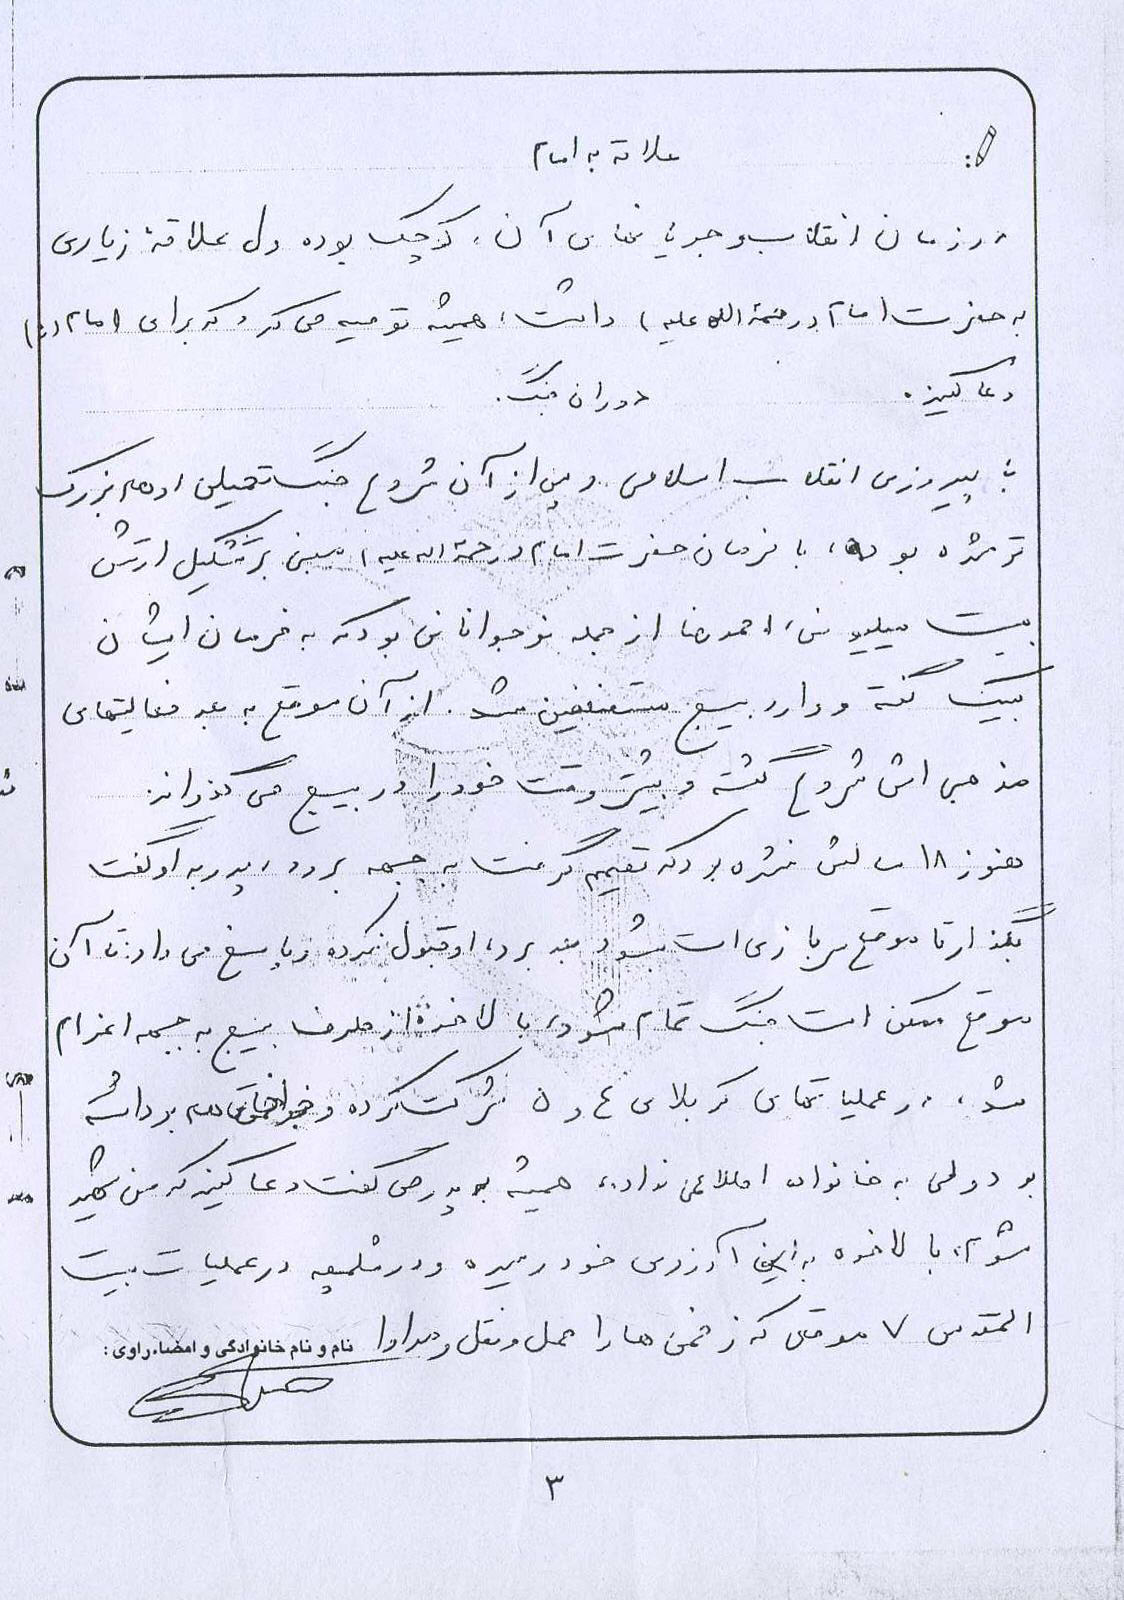 علاقه به امام
در زمان انقلاب و جریانهای آن، کوچک بوده ولی علاقهٔ زیادی
به حضرت امام (رحمة الله علیه) داشت، همیشه توصیه می کرد که برای امام (ره)
دعا کنید.
دوران جنگ.
با پیروزی انقلاب اسلامی و پس از آن شروع جنگ تحمیلی او هم بزرگ
تر شده بود، با فرمان حضرت امام (رحمة اله علیه) مبنی بر تشکیل ارتش
بیست میلیونی، احمدرضا از جمله نوجوانانی بود که به فرمان ایشان
لبیک گفته و وارد بسیج مستضعفین شد. از آن موقع به بعد فعالیتهای
مذهبی اش شروع گشته و بیشتر وقت خود را در بسیج می گذراند.
هنوز ۱۸ سالش نشده بود که تصمیم گرفت به جبهه برود، پدر به او گفت
بگذار تا موقع سربازی ات بشود بعد برو، او قبول نکرده و پاسخ می داد: تا آن
موقع ممکن است جنگ تمام شود، بالاخره از طرف بسیج به جبهه اعزام
شد، در عملیاتهای کربلای ۴ و ۵ شرکت کرده و هم برداشته
بود ولی به خانواده اطلاعی نداد، همیشه به پدر می گفت دعا کنید که من شهید
شوم، بالاخره به این آرزوی خود رسیده و در شلمچه در عملیات بیت
المقدس ۷ موقعی که زخمی ها را حمل و نقل و مداوا
نام و نام خانوادگی و امضاء راوی:
۳